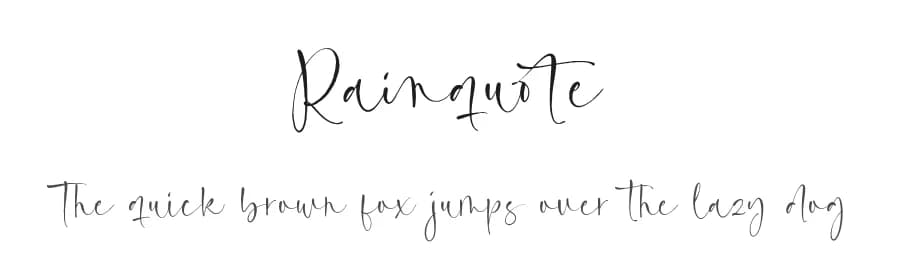 Rainquote
The quick brown fox jumps over the lazy dog